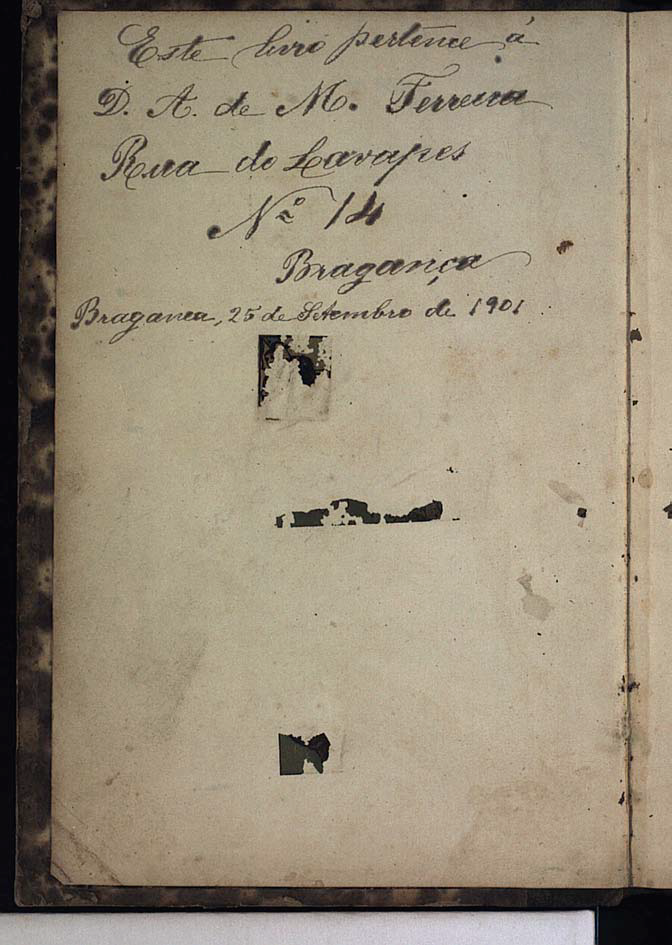 Este livro pertence á
D. A. de M. Ferreira
Rua do Lavapes
Nº 14
Bragança
Bragança, 25 de Setembro de 1901